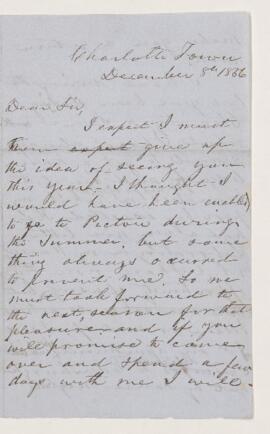 Charlotte Town
December 8th 1866
Dear Sir,
I expect I must
expect give up
the idea of seeing you
this year - I thought I
would have been enabled
to go to Pictou during
the Summer, but some
thing always occured
to prevent me. So we
must look forward to
the next, season for that
pleasure and if you
will promise to come
over and spend a few
days with me I will